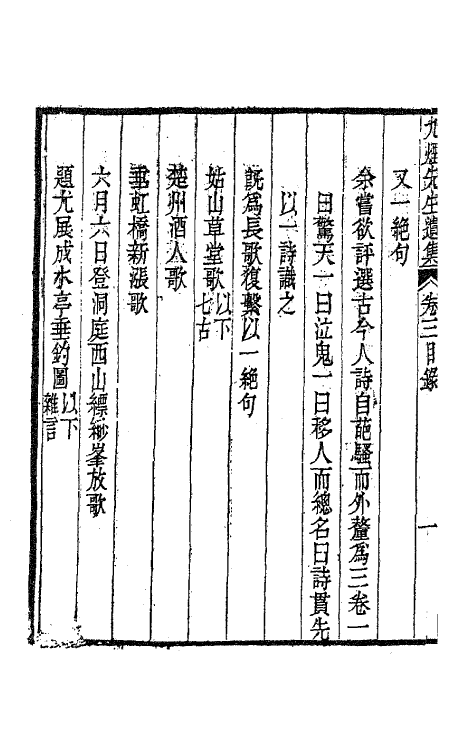 九煙先生遺集 卷三目錄 一
又一絕句
余嘗欲評選古今人詩自葩騷而外釐爲三卷一
曰驚天一曰泣鬼一曰移人而總名曰詩貫先
以一詩識之
旣爲長歌復繫以一絕句
姑山草堂歌以下七古
楚州酒人歌
垂虹橋新漲歌
六月六日登洞庭西山縹緲峯放歌
題尤展成水亭垂釣圖以下雜言